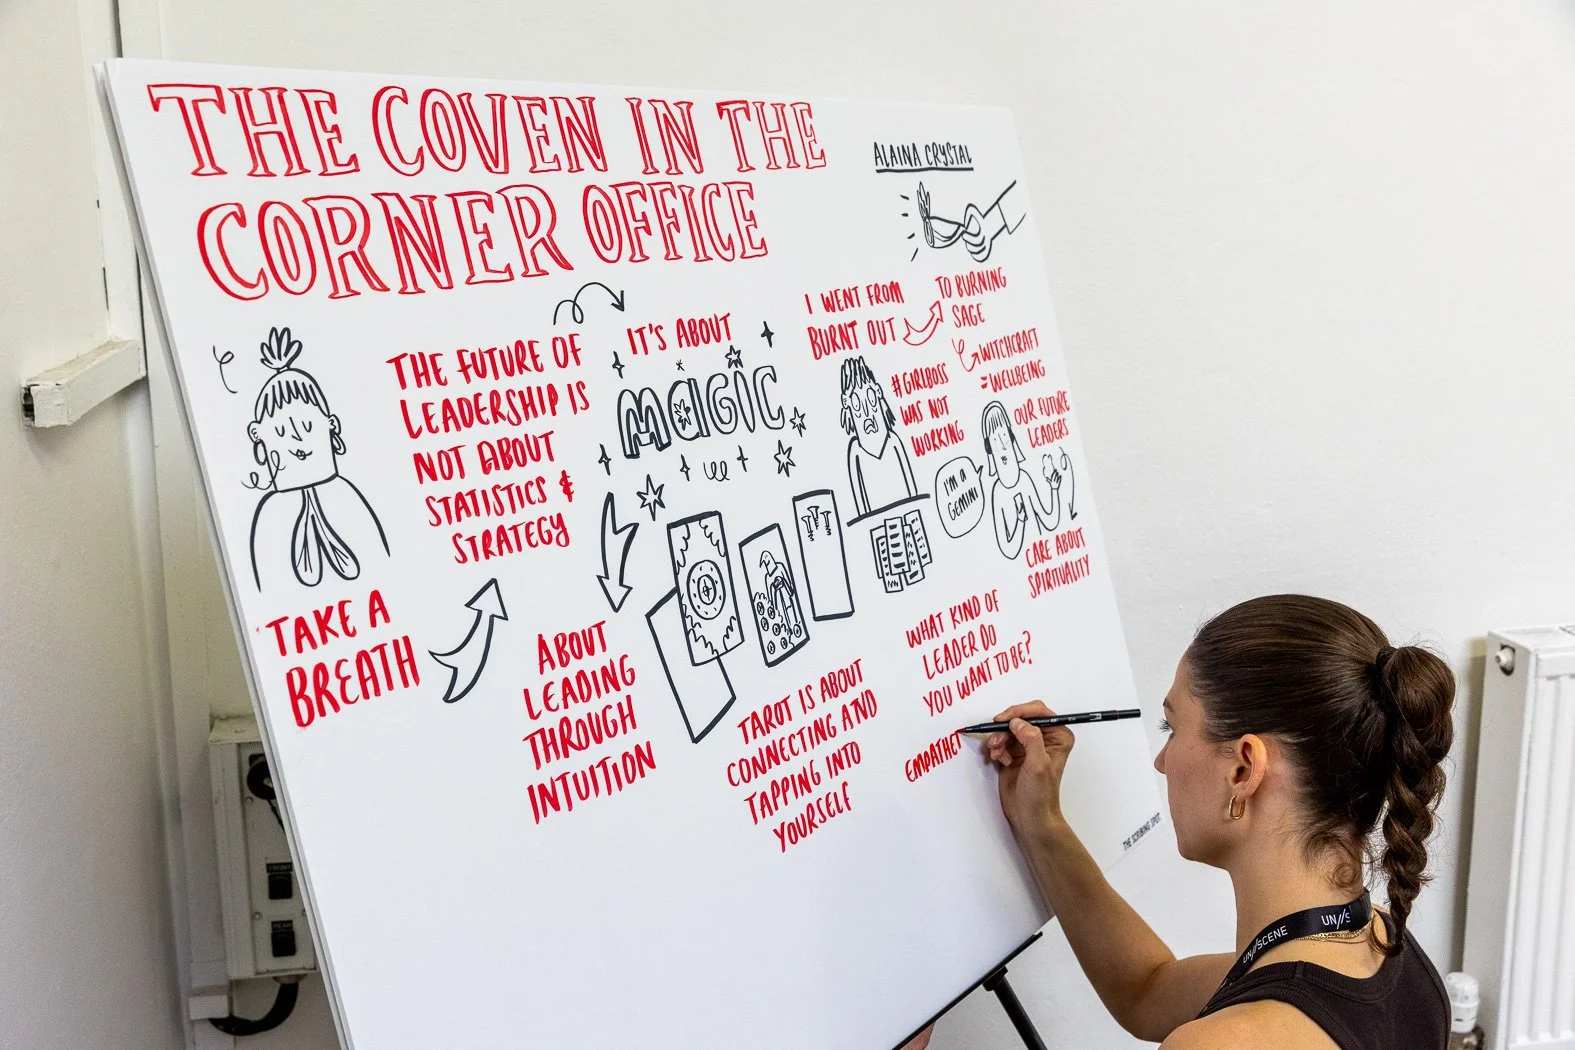 THE COVEN IN THE
CORNER OFFICE
ALAINA CRYSTAL
TAKE A
BREATH
THE FUTURE OF
LEADERSHIP IS
NOT ABOUT
STATISTICS &
STRATEGY
IT'S ABOUT
MAGIC
ABOUT
LEADING
THROUGH
INTUITION
TAROT IS ABOUT
CONNECTING AND
TAPPING INTO
YOURSELF
I WENT FROM
BURNT OUT
TO BURNING
SAGE
WITCHCRAFT
= WELLBEING
#GIRLBOSS
WAS NOT
WORKING
OUR FUTURE
LEADERS
I'M A
GEMINI
CARE ABOUT
SPIRITUALITY
WHAT KIND OF
LEADER DO
YOU WANT TO BE?
EMPATHET
THE SCRIBING SPOT
UN//SCENE
UN//S
FRONT